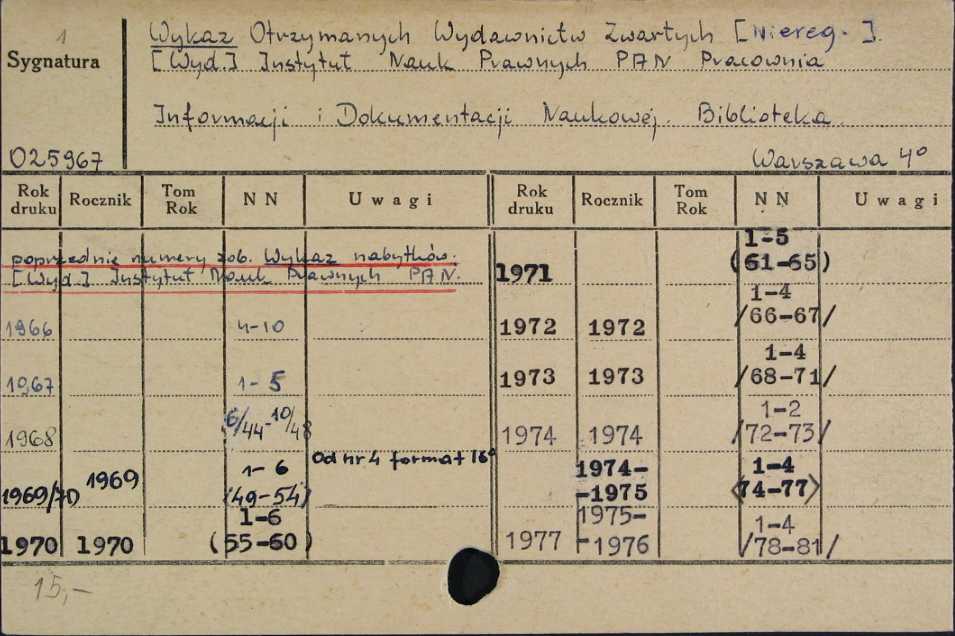 1
Sygnatura
Wykaz Otrzymanych Wydawnictw Zwartych [Niereg.].
[Wyd.] Instytut Nauk Prawnych PAN Pracownia
Informacji i Dokumentacji Naukowej. Biblioteka.
025967
Warszawa 4°
Rok druku Rocznik Tom Rok NN Uwagi Rok druku Rocznik Tom Rok NN Uwagi
poprzednie numery zob. Wykaz nabytków.
[Wyd.] Instytut Nauk Prawnych PAN.
1966 4-10
1967 1-5
1968 6/44-10/48
Od nr 4 format 16°
1969/70 1969 1-6 (49-54)
1970 1970 1-6 (55-60)
1971 1-5 (61-65)
1972 1972 1-4 /66-67/
1973 1973 1-4 /68-71/
1974 1974 1-2 /72-73/
1974-1975 1-4 <74-77>
1977 1975-1976 1-4 /78-81/
15,-